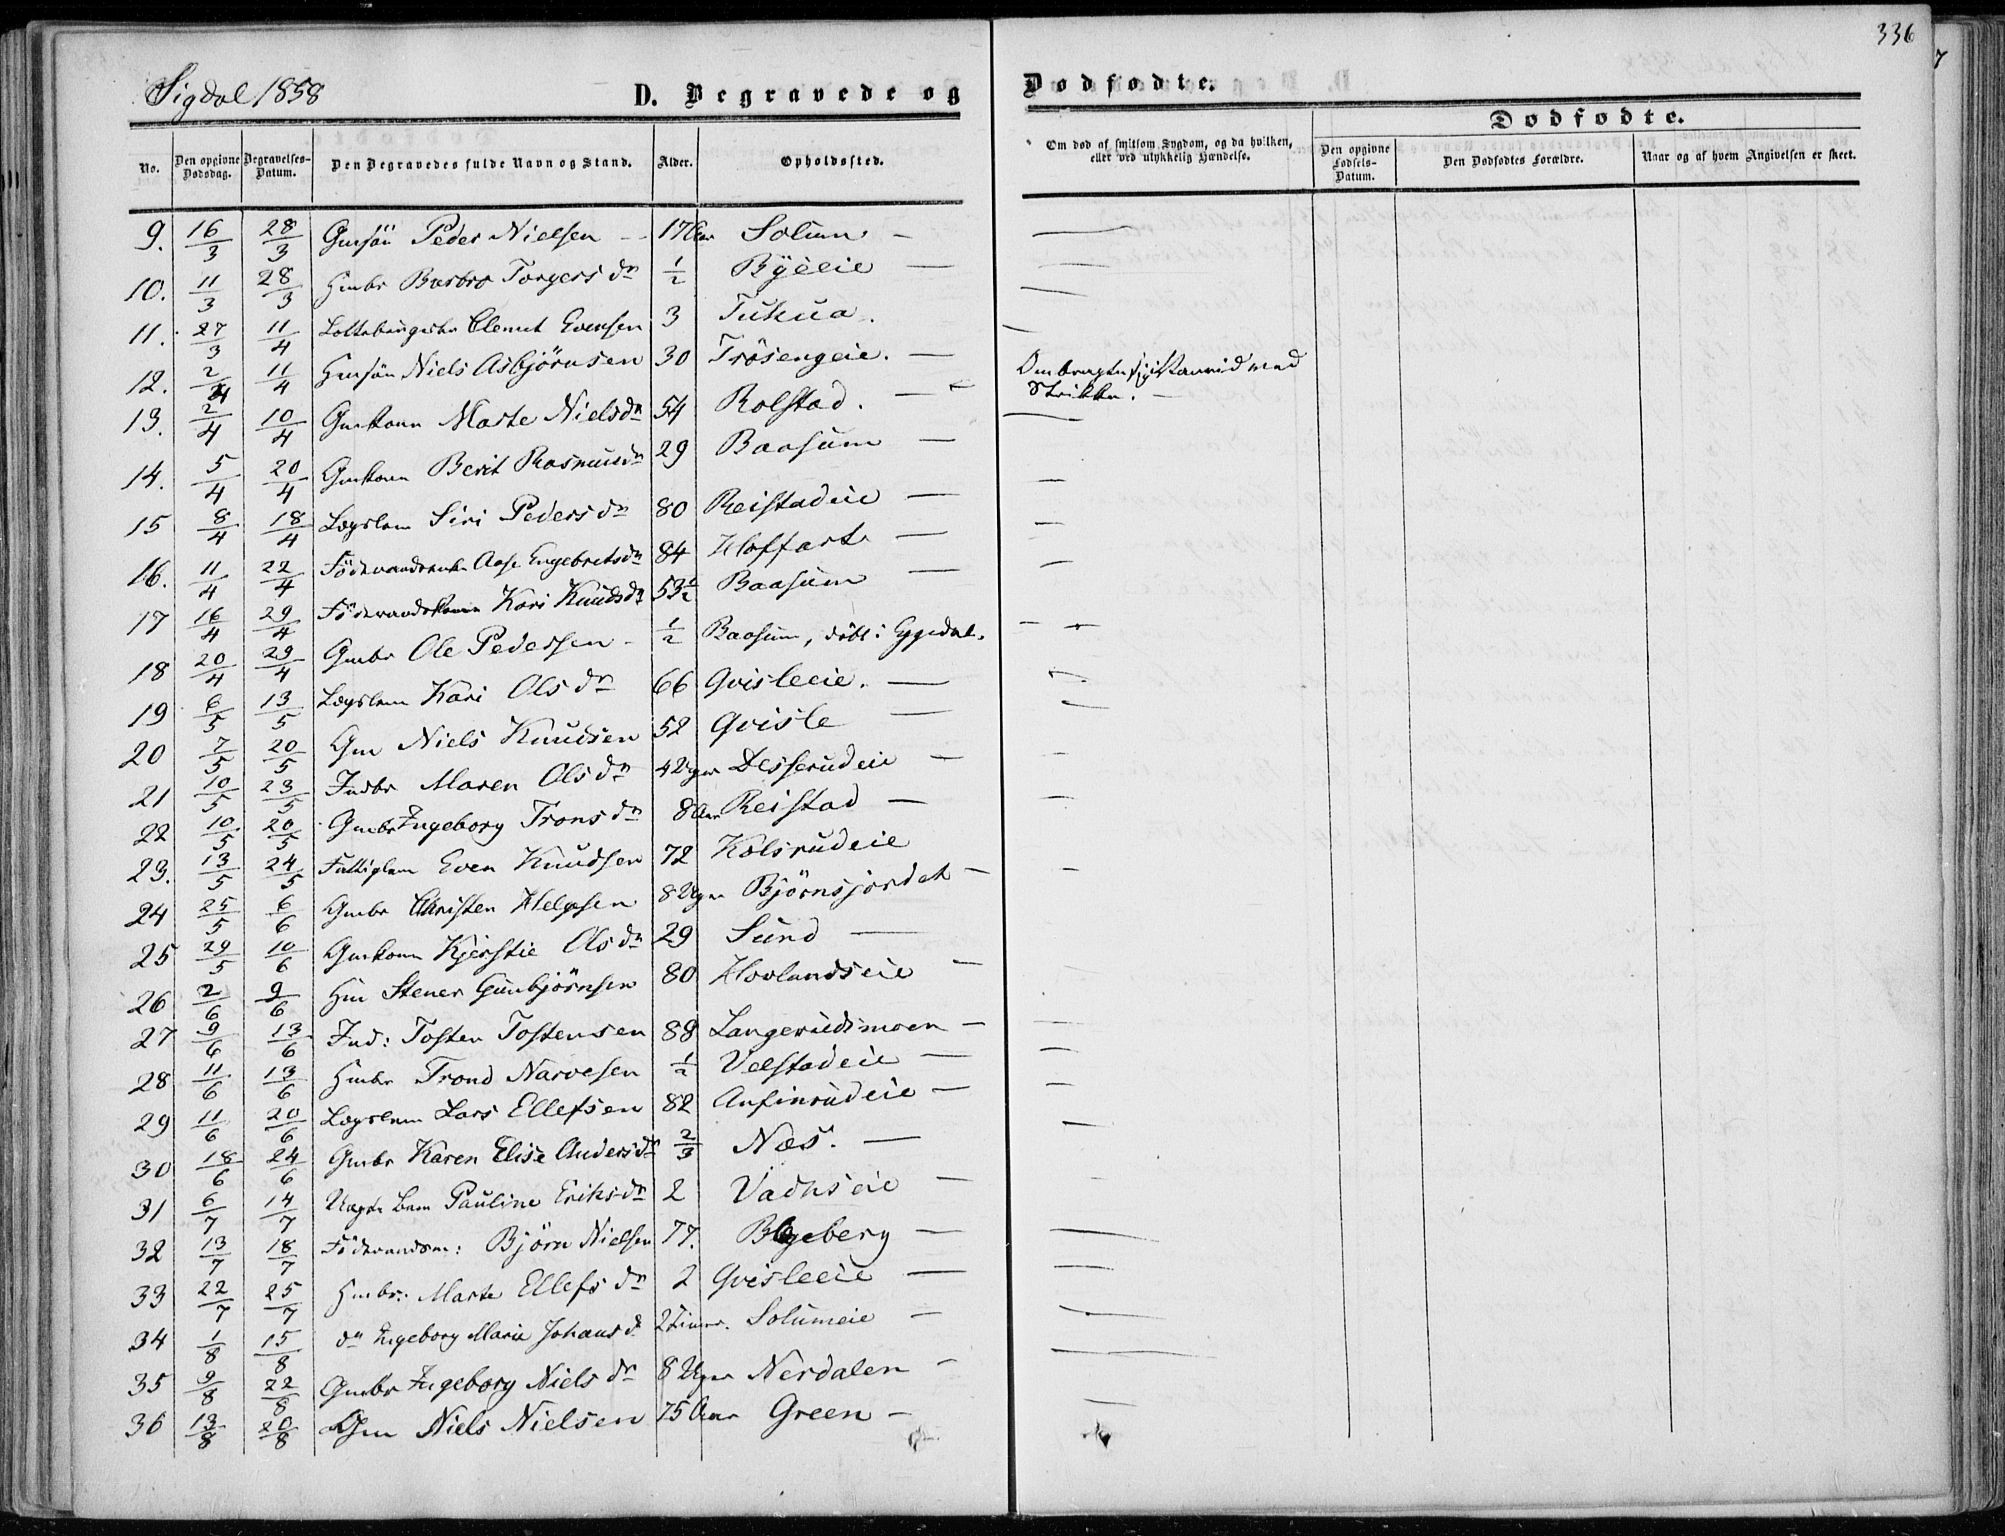 336
Sigdal 1858
D. Begravede og Dødfødte.
Dødfødte.
No. Den opgivne Dødsdag. Begravelses-Datum. Den Begravedes fulde Navn og Stand. Alder. Opholdssted. Om død af smitsom Sygdom, og da hvilken, eller ved ulykkelig Hændelse. Den opgivne Fødsels-Datum. Den Dødfødtes Forældre. Naar og af hvem Angivelsen er skeet.
9. 16/3 28/3 Gmsön Peder Nielsen — 17 Aar Solum —
10. 11/3 28/3 Hmbr Barbro Torgers dr 1/2 Byeeie —
11. 27/3 11/4 Clemet Evensen 3 Tukua.
12. 2/4 11/4 Hmsön Niels Asbjörnsen 30 Frösengeie. — Ombragte sig med Strikke. —
13. 2/4 10/4 Gmkone Marte Nielsdr 54 Rolstad. —
14. 5/4 20/4 Gmkone Berit Rasmusdr 29 Baasum —
15 8/4 18/4 Lægslem Siri Pedersdr 80 Reistadeie —
16. 11/4 22/4 Föderaadsenke Aase Engebretsdr 84 Hoffart —
17 16/4 29/4 Föderaadskone Kari Knudsdr 53 1/2 Baasum —
18 20/4 29/4 Gmbr Ole Pedersen — 1/2 Baasum, döbt i Eggedal.
19 6/5 13/5 Lægslem Kari Ols dr 66 Qvisleeie. —
20 7/5 20/5 Gm Niels Knudsen 52 Qvisle —
21 10/5 23/5 Indbr Maren Olsdr 4 Uger Desserudeie —
22 10/5 20/5 Gmbr Ingeborg Trons dr 8 Aar Reistad —
23. 13/5 24/5 Fattiglem Even Knudsen 72 Kolsrudeie
24 25/5 6/6 Gmbr Christen Helgesen 8 Uger Björnsjordet —
25 29/5 10/6 Gmkone Kjerstie Olsdr 29 Sund —
26 2/6 9/6 Hm Stener Gunbjörnsen 80 Hovlandseie —
27 9/6 13/6 Ind: Tosten Tostensen 88 Langerudsmoen —
28 11/6 13/6 Hmbr Trond Narvesen 1/2 Velstadeie —
29 11/6 20/6 Lægslem Lars Ellefsen 82 Anfinrudeie —
30 18/6 24/6 Gmbr Karen Elise Andersdr 2/3 Næs. —
31 6/7 14/7 Uægte Barn Pauline Eriksdr 2 Vadnseie —
32 13/7 18/7 Föderaadsm: Björn Nielsen 77. Bageberg —
33 22/7 25/7 Hmbr: Marte Ellefs dr 2 Qvisleeie —
34 1/8 15/8 do Ingeborg Marie Johansd. 2 Timer. Solumeie —
35 9/8 22/8 Gmbr Ingeborg Niels dr 8 Uger Nerdalen —
36 13/8 20/8 Gm Niels Nielsen 75 Aar Green —